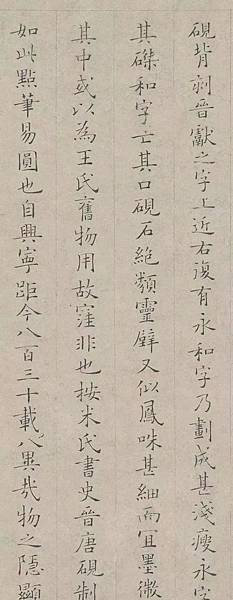 硯背刻晉獻之字上近右復有永和字乃劃成甚淺瘦永字
其磔和字亡其口硯石絶類靈壁又似鳳咮甚細而宜墨微
其中或以為王氏舊物用故窪非也按米氏書史晉唐硯制
如此點筆易圓也自興寧距今八百三十載異哉物之隱顯